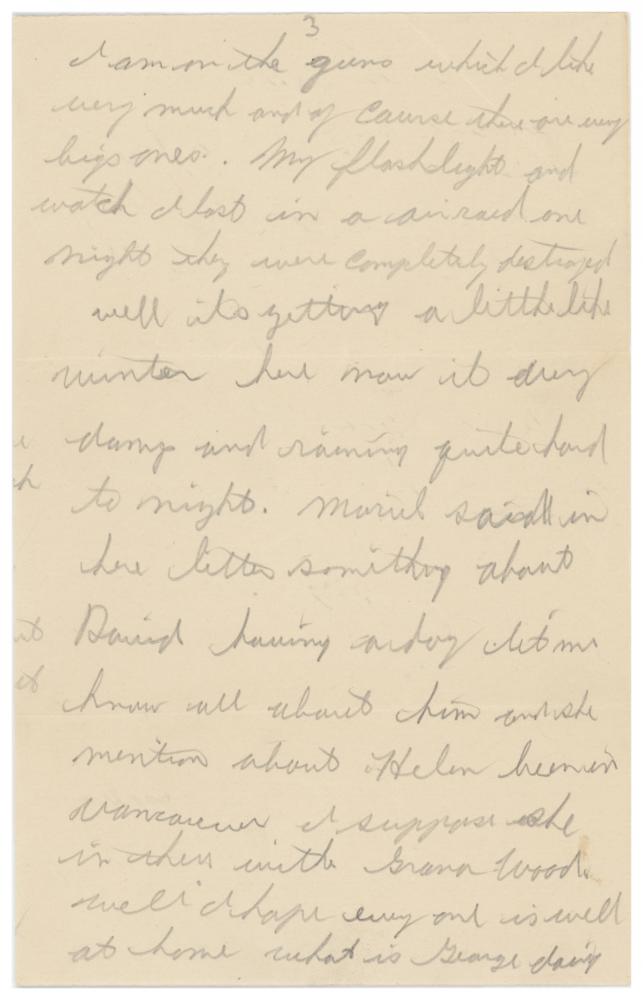 3
I am on the guns which I like
very much and of course there are very
bigs ones. My flashlight and
watch I lost in a airraid one
night they were completely destroyed
well its getting a little like
winter here now it
damp and raining quite hard
to night. Muriel said in
here letter something about
David having a dog let me
know all about him and she
mention about Helen been in
Vancouver I suppose she
in there with Grana Wood.
well I hope every one is well
at home what is George doing